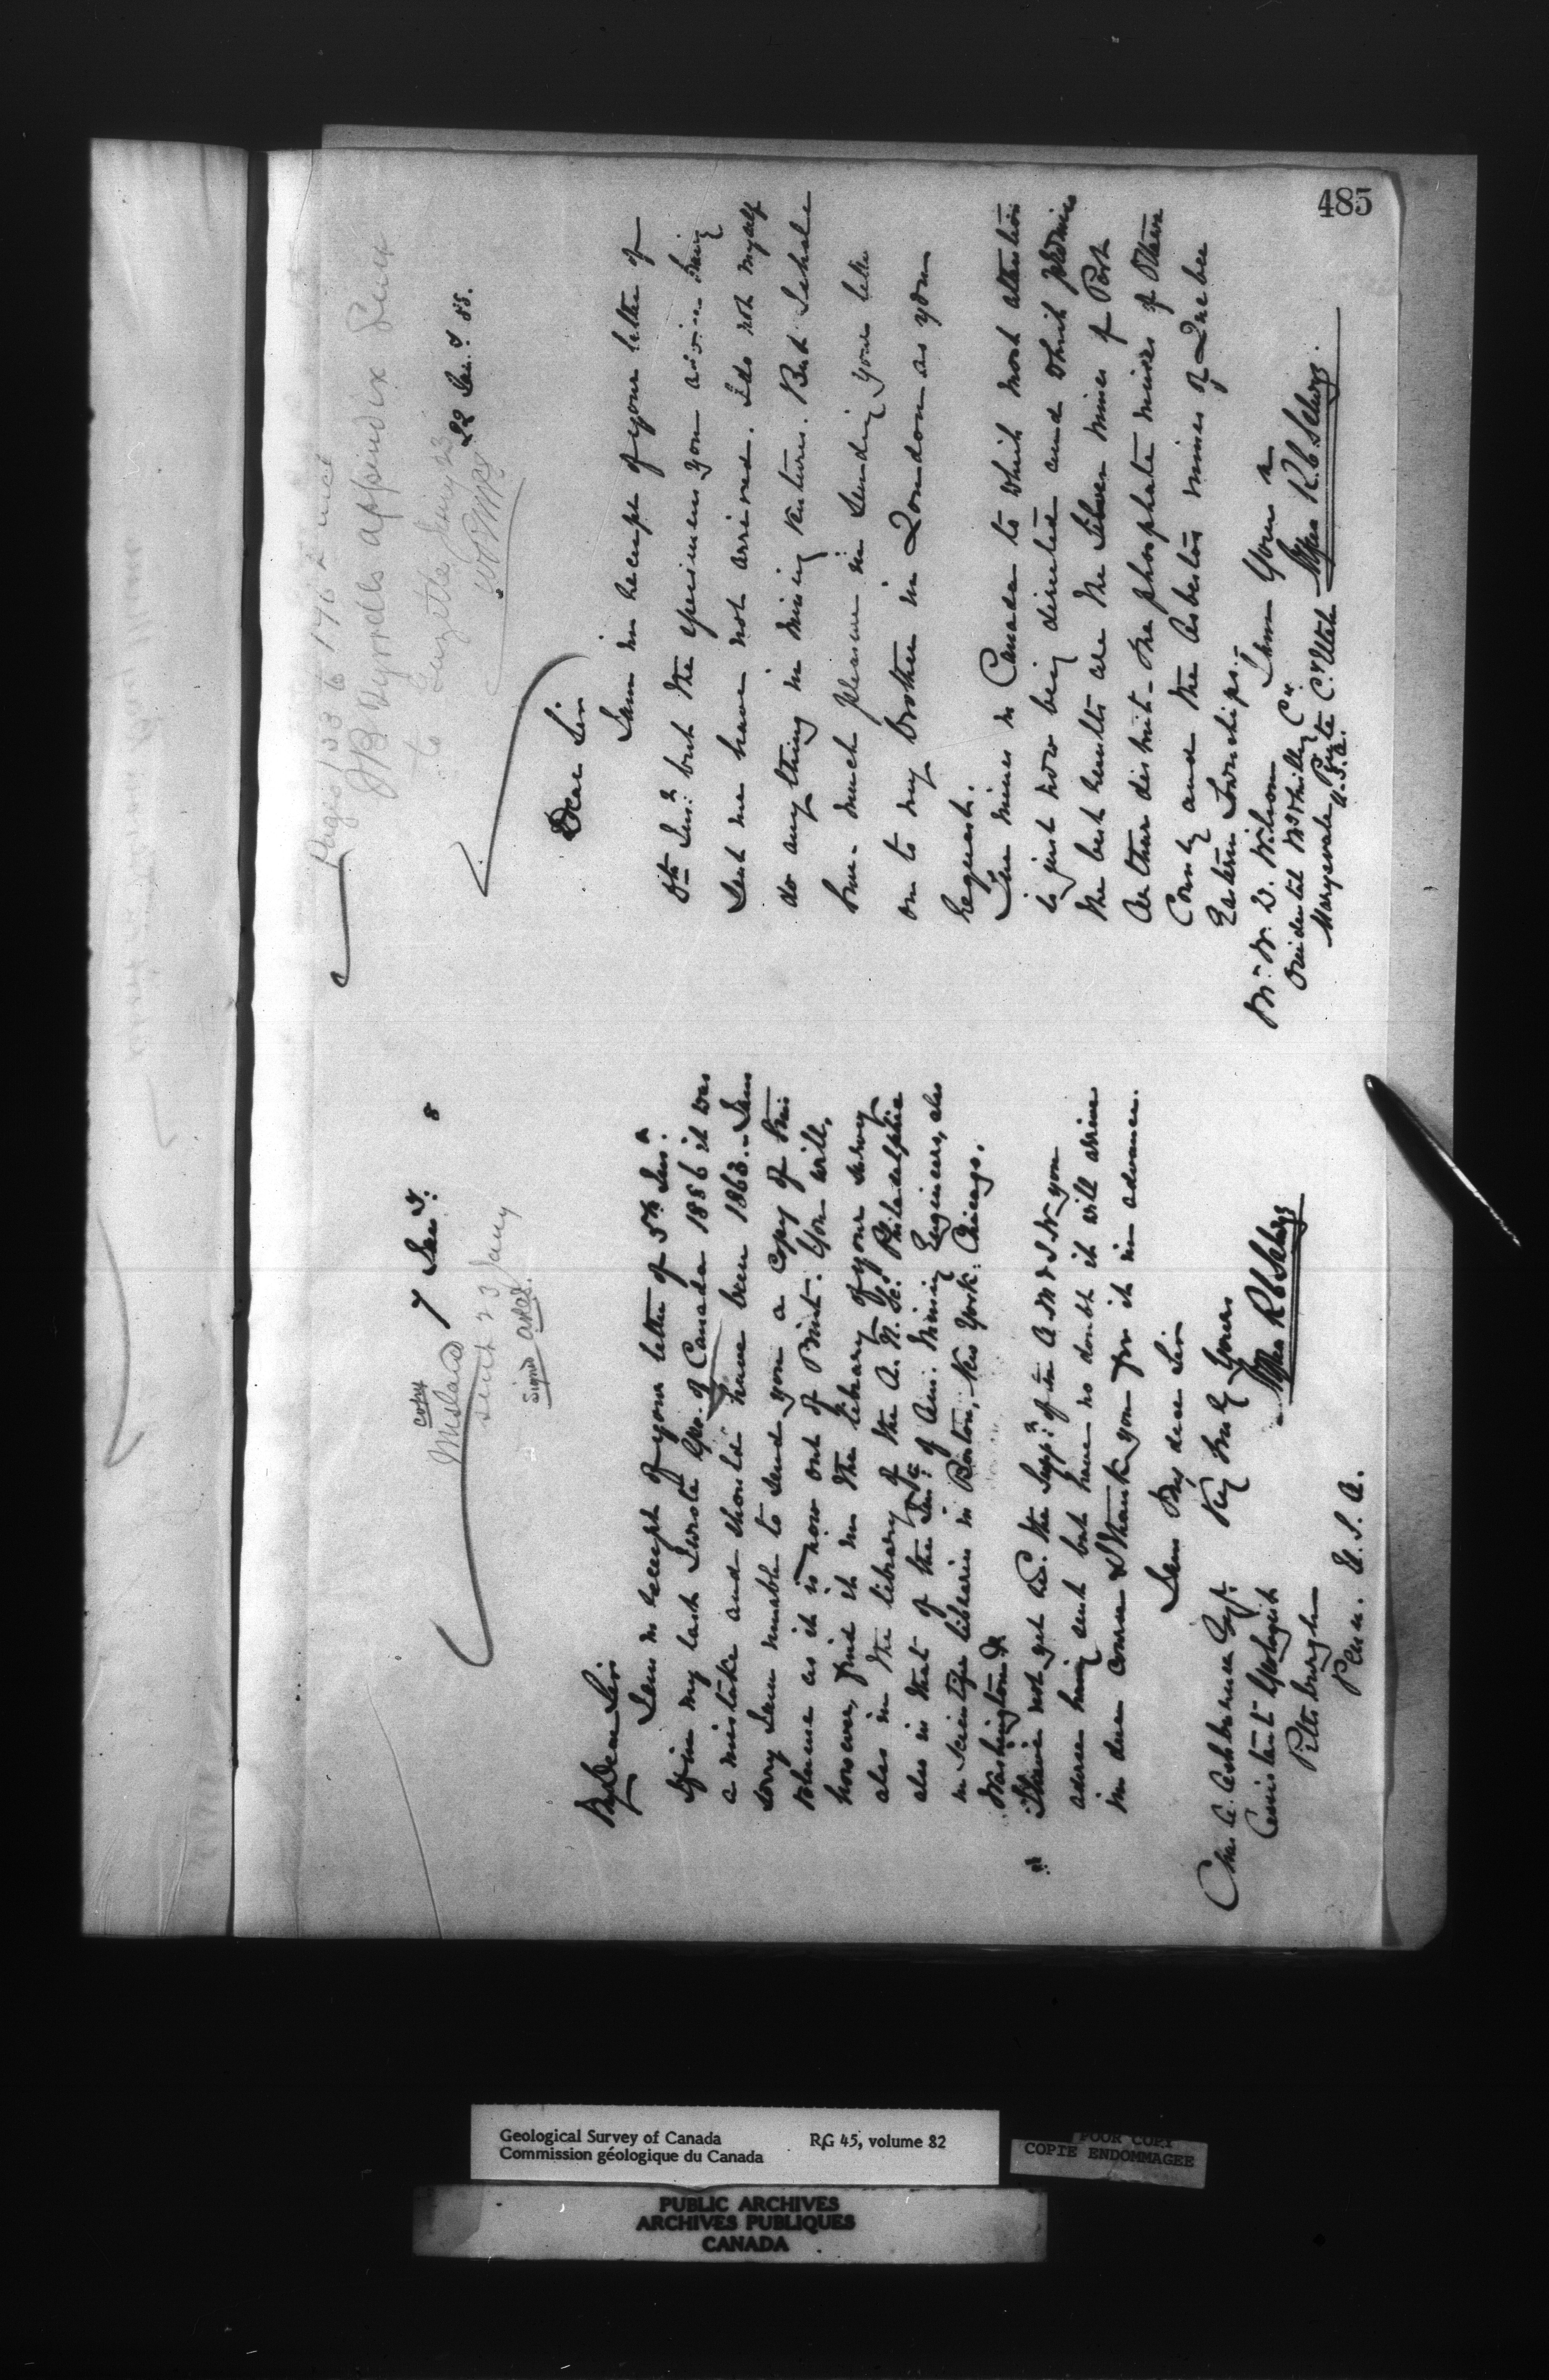 copy
mislaid
sent 23 Jany
signed
7 Jan y. 8
My Dear Sir
I am in receipt of your letter of 5th Ins.
If in my last I wrote Geo. of Canada 1886 it was
a mistake and should have been 1863. – I am
sorry I am unable to send you a copy of this
volume as it is now out of Print. You will,
however, find it in the library of your Survey
also in the library of the A. N. Sc. Philadelphia
also in that of the Ins. of Am. Mining Engineers, also
in Scientific libraries in Boston, New York, Chicago,
Washington &c
I have not yet the Supp. of the
address being sent but have no doubt it will arrive
in due course & I thank you for it in advance.
I am My dear Sir
Very truly Yours
Alfred R C Selwyn
Chas. A. Ashburner Esq.
Assistant Geologist
Pittsburgh
Penn. U. S. A.
Pages 133 to 176
JB Tyrrells appendix
to Gazette Jany 23
22 Jan. y 88.
Dear Sir
I am in receipt of your letter of
8th Ins. but the specimens you advise having
sent me have not arrived. I do not myself
do anything in mining ventures. But I shall
have much pleasure in sending your letter
on to my brother in London as you
request.
The mines in Canada to which most attention
is just now being directed and which promise
the best results are the Silver mines of Port
Arthur district – the phosphate mines of Ottawa
County and the Asbestos mines of Quebec
Eastern Townships. –
I am Yours
Alfred R. C. Selwyn
Mr. W. D. Wilson
Marysvale Piute Co. Utah
U.S.A.
485
Geological Survey of Canada RG 45, volume 82
Commission géologique du Canada
POOR COPY
COPIE ENDOMMAGEE
PUBLIC ARCHIVES
ARCHIVES PUBLIQUES
CANADA